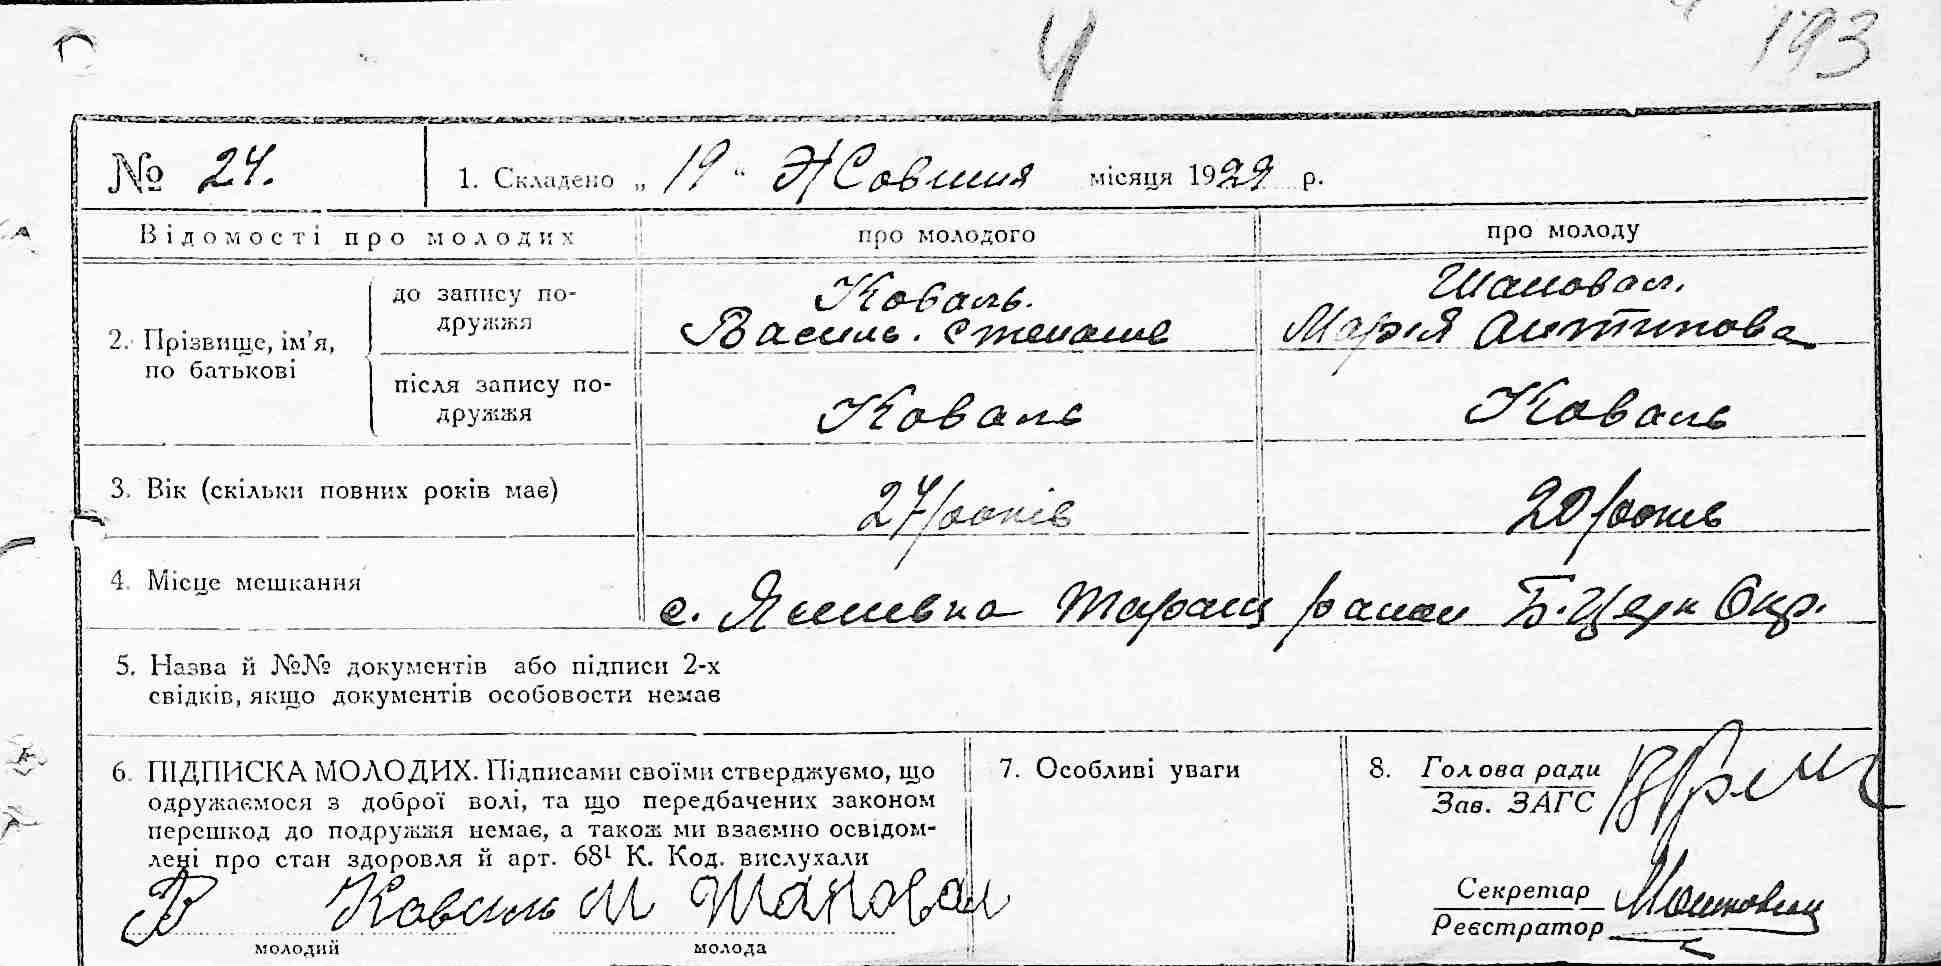 4
193
№ 24.
1. Складено „ 19 “ Жовтня місяця 1929 р.
Відомості про молодих
про молодого
про молоду
2. Прізвище, ім’я, по батькові
до запису по-
дружжя
Коваль.
Василь. Степанов
Шаповал.
Марія Антипова
після запису по-
дружжя
Коваль
Коваль
3. Вік (скільки повних років має)
27 років
20 років
4. Місце мешкання
с. Таращ району Б-Церк Окр.
5. Назва й №№ документів або підписи 2-х
свідків, якщо документів особовости немає
6. ПІДПИСКА МОЛОДИХ. Підписами своїми стверджуємо, що
одружаємося з доброї волі, та що передбачених законом
перешкод до подружжя немає, а також ми взаємно освідом-
лені про стан здоровля й арт. 68¹ К. Код. вислухали
В Коваль М Шаповал
молодий
молода
7. Особливі уваги
8. Голова ради
Зав. ЗАГС
Секретар
Реєстратор